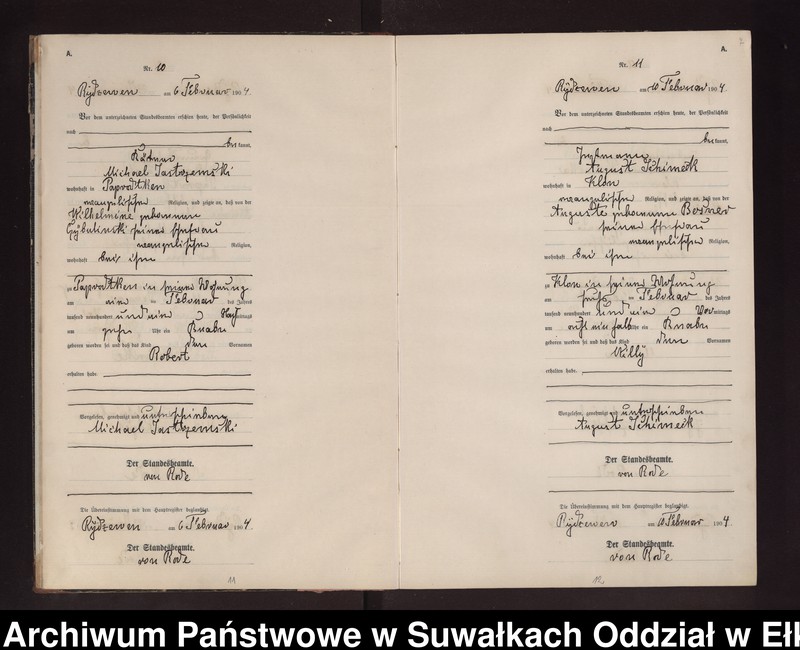 A.
Nr. 10
Rydzewen am 6 Februar 1904.
Vor dem unterzeichneten Standesbeamten erschien heute, der Persönlichkeit
nach
bekannt,
Michael Jastrzemski
wohnhaft in Paprodtken
evangelischer Religion, und zeigte an, daß von der
Wilhelmine geborenen
Gybalinski seiner Ehefrau
evangelischer Religion,
wohnhaft bei ihm
zu Paprodtken in seiner Wohnung
am Februar des Jahres
tausend neunhundert und vier Nachmittags
um zehn Uhr ein Knabe
geboren worden sei und daß das Kind den Vornamen
Robert
erhalten habe.
Vorgelesen, genehmigt und unterschrieben
Michael Jastrzemski
Der Standesbeamte.
von Rode
Die Übereinstimmung mit dem Hauptregister beglaubigt.
Rydzewen am 6 Februar 1904.
Der Standesbeamte.
von Rode
11
A.
Nr. 11
Rydzewen am 10 Februar 1904.
Vor dem unterzeichneten Standesbeamten erschien heute, der Persönlichkeit
nach
bekannt,
August Schimeck
wohnhaft in Klon
evangelischer Religion, und zeigte an, daß von der
Auguste geborenen
seiner Ehefrau
evangelischer Religion,
wohnhaft bei ihm
zu Klon in seiner Wohnung
am Februar des Jahres
tausend neunhundert und vier Vormittags
um acht ein halb Uhr ein Knabe
geboren worden sei und daß das Kind den Vornamen
Willy
erhalten habe.
Vorgelesen, genehmigt und unterschrieben
August Schimeck
Der Standesbeamte.
von Rode
Die Übereinstimmung mit dem Hauptregister beglaubigt.
Rydzewen am 10 Februar 1904
Der Standesbeamte.
von Rode
12
Archiwum Państwowe w Suwałkach Oddział w Ełk